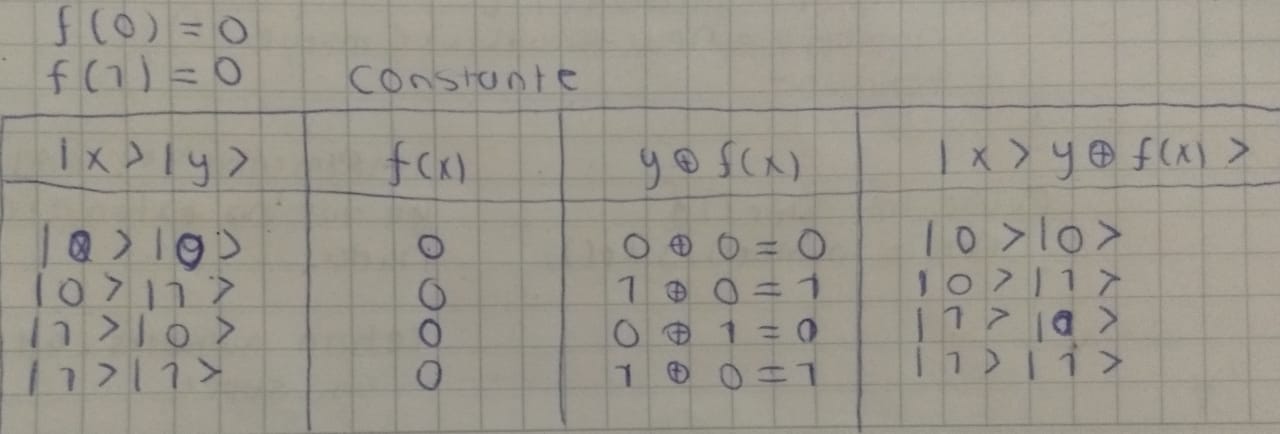 f(0) = 0
f(1) = 0 constante
|x>|y> f(x) y ⊕ f(x) |x> y ⊕ f(x) >
|0>|0> 0 0 ⊕ 0 = 0 |0>|0>
|0>|1> 0 1 ⊕ 0 = 1 |0>|1>
|1>|0> 0 0 ⊕ 1 = 0 |1>|0>
|1>|1> 0 1 ⊕ 0 = 1 |1>|1>